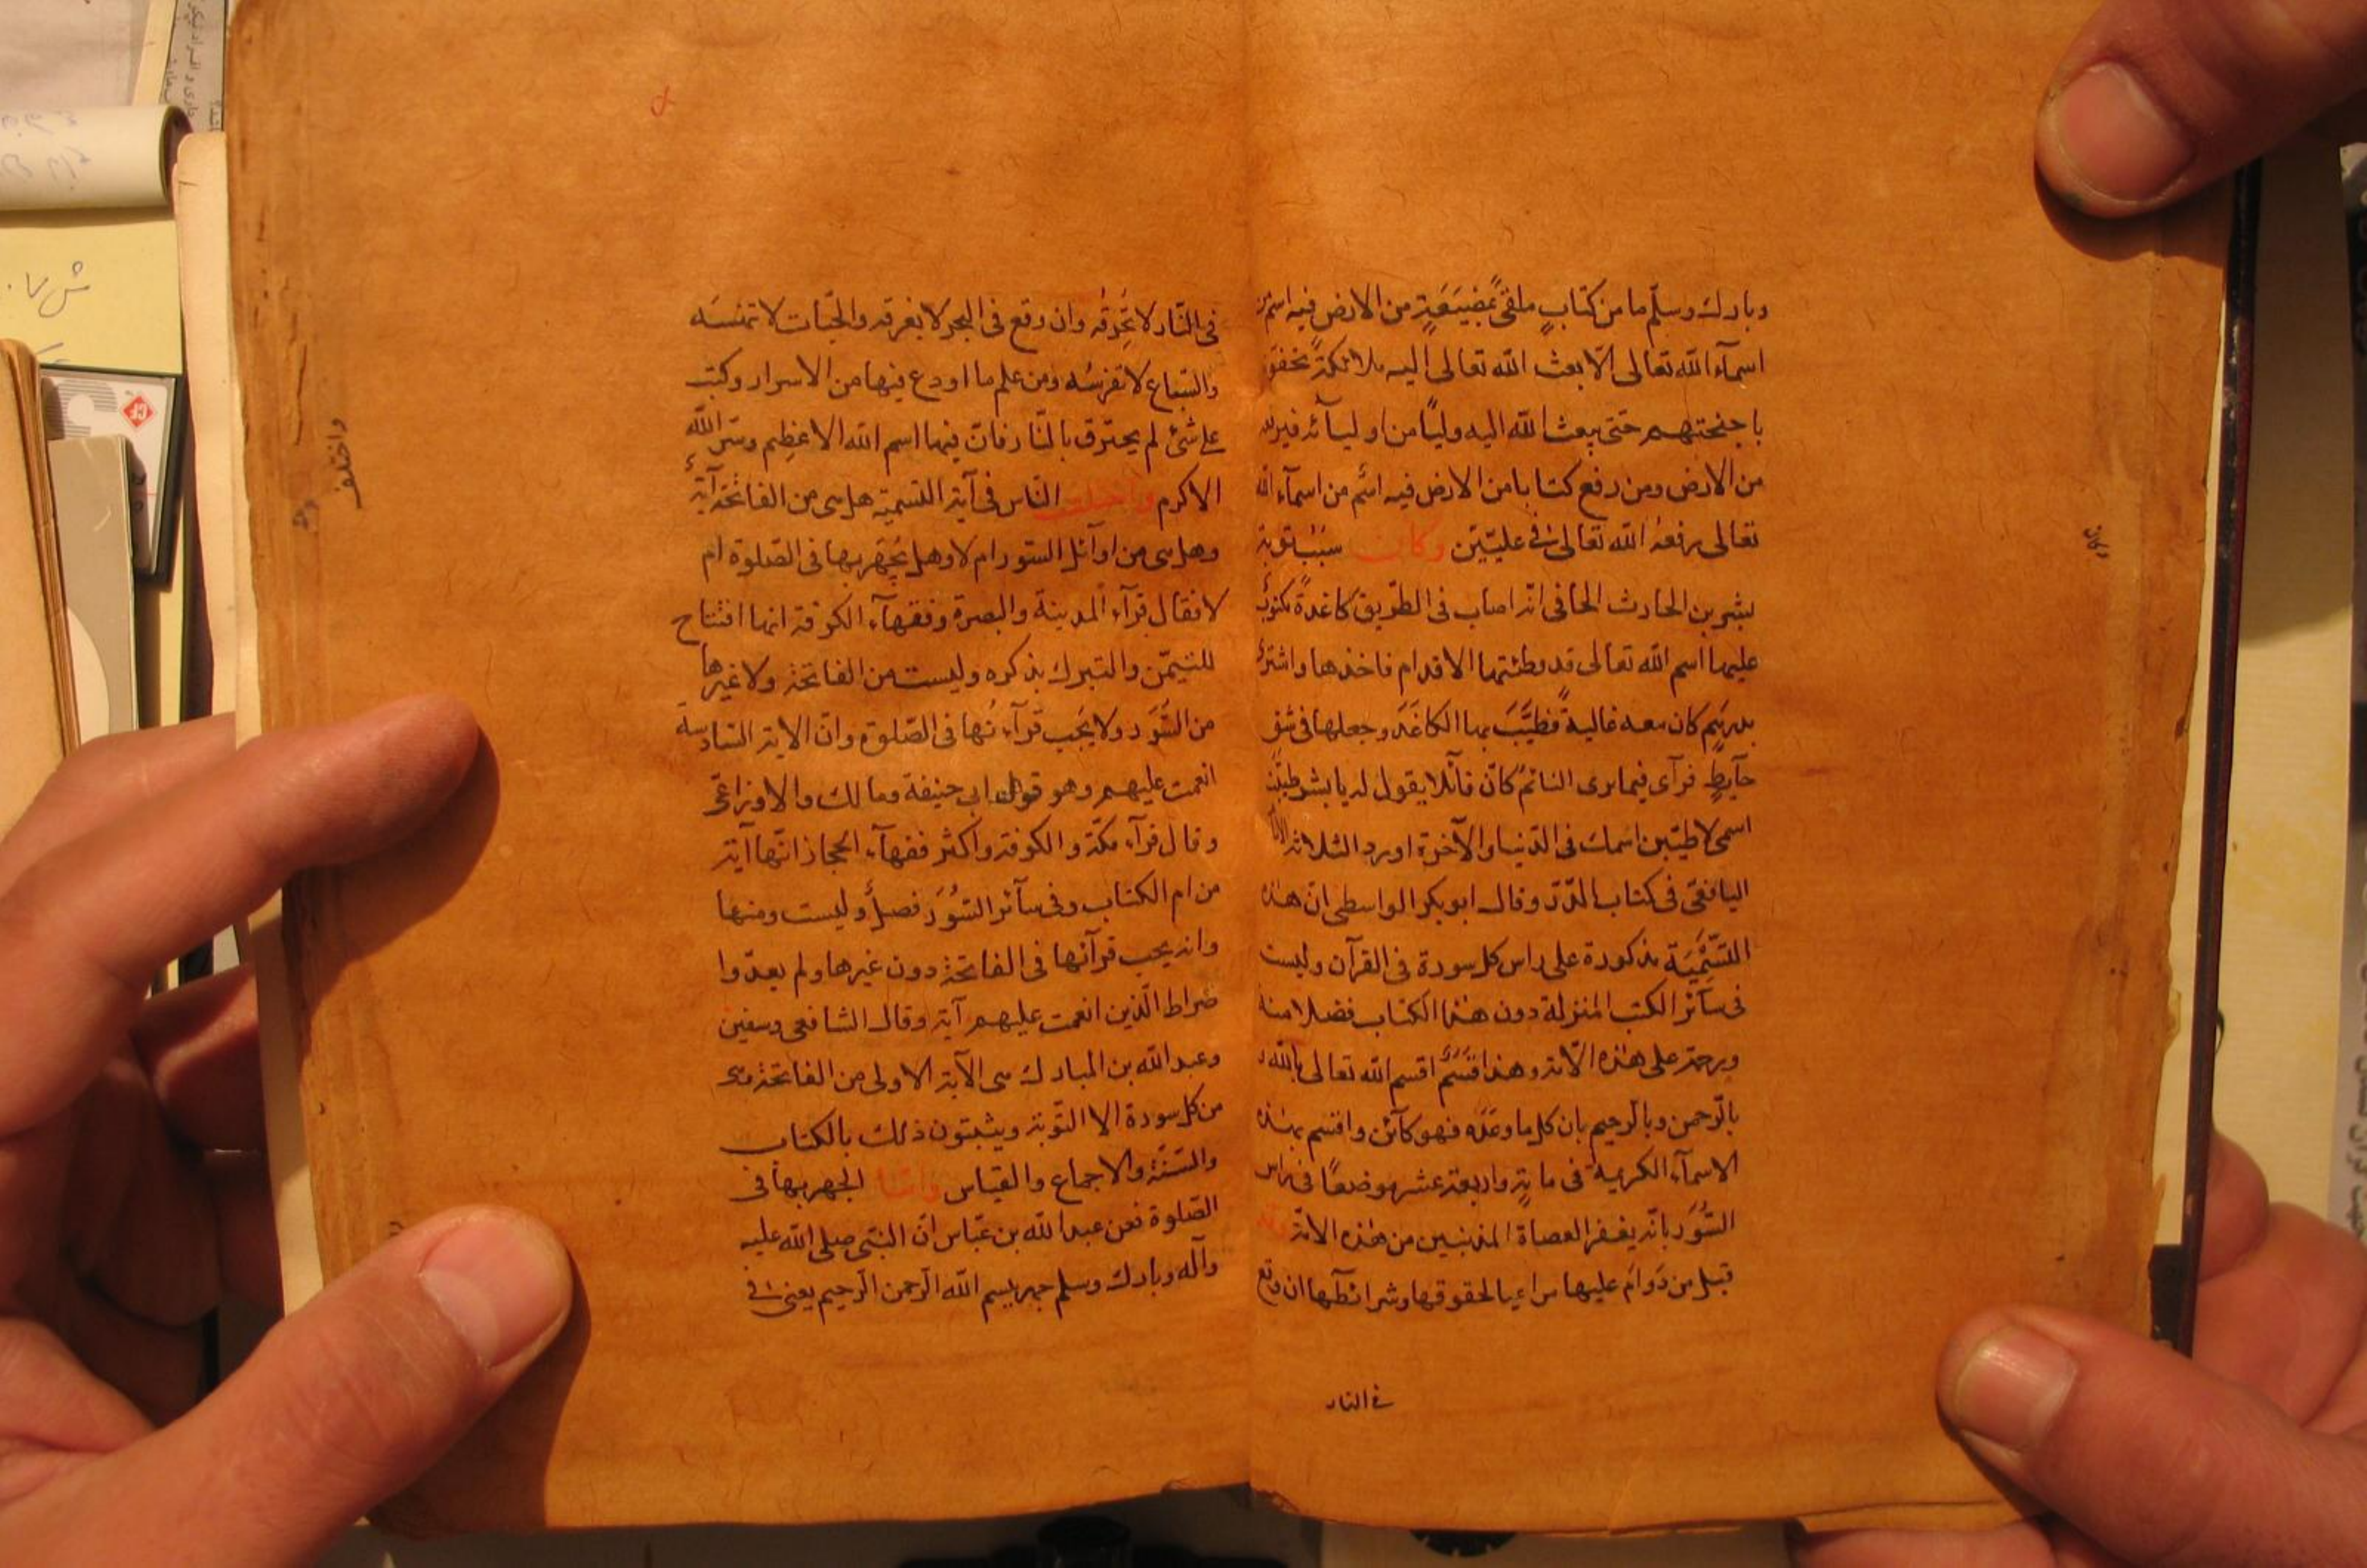 وبارك وسلّم ما من كتابٍ ملقىً بمضيَعَةٍ من الارض فيه اسم من
اسمآء الله تعالى الّا بعث الله تعالى اليه ملائكةً يحفّونه
باجنحتهم حتى يبعث الله اليه وليًا من اوليآئه فيرفعه
من الارض ومن رفع كتابا من الارض فيه اسم من اسمآء الله
تعالى رفعهُ الله تعالى فى عليّين وكان سبب توبة
بشر بن الحارث الحافى انّه اصاب فى الطّريق كاغدةً مكتوبٌ
عليها اسم الله تعالى قد وطئتها الاقدام فاخذها واشترى
بدرهم كان معه غاليةً فطيّبَ بها الكاغَد وجعلها فى شق
حآيطٍ فرآى فيما يرى النائم كانّ قآئلا يقول له يا بشر طيّبت
اسمى لاطيّبن اسمك فى الدّنيا والآخرة اورد الثلاثة الامام
اليافعى فى كتاب الدّرر وقال ابو بكر الواسطى انّ هذه
التّسْمِيَة مذكورة على راس كل سورة فى القرآن وليست
فى سآئر الكتب المنزلة دون هذا الكتاب فضلا منه
ورحمة على هذه الامّة وهذا قسَمٌ اقسم الله تعالى بالله و
بالرحمن وبالرحيم بان كل ما وعَدَه فهو كآئن واقسم بهذه
الاسمآء الكريمة فى مايةٍ واربعة عشر موضعًا فى راس
السُّوَر بانّه يغفر العصاة المذنبين من هذه الامّة وقد
قيل من دَوامَ عليها مراعيا لحقوقها وشرائطها ان وقع
فى النار
وكان
فى النّار لا تُحرِقُه وان وقع فى البحر لا يغرقه والحيّات لا تنهسَه
والسّباع لا تفرسُه ومن علم ما اودع فيها من الاسرار وكتب
على شئ لم يحترق بالنّار فانّ فيها اسم الله الاعظم وسرّ الله
الاكرم واختلف النّاس فى آية التسمية هل هى من الفاتحة آيةٌ
وهل هى من اوآئل السّور ام لا وهل يُجهَر بها فى الصّلوة ام
لا فقال قرآء المدينة والبصرة وفقهآء الكوفة انها افتتاح
للتيمّن والتبرك بذكره وليست من الفاتحة ولا غيرها
من السُّوَر ولا يجَب قرآءتُها فى الصّلوة وانّ الاية السّادسة
انعمت عليهم وهو قول ابى حنيفة ومالك والاوزاعى
وقال قرآء مكّة والكوفة واكثر فقهآء الحجاز انّها آية
من ام الكتاب وفى سآئر السُّوَر فصلٌ وليست ومنها
وانه يجب قرآتها فى الفاتحة دون غيرها ولم يعدّوا
صراط الّذين انعمت عليهم آية وقال الشافعى وسفين
وعبد الله بن المبارك هى الآية الاولى من الفاتحة وهى
من كل سورة الا التّوبة ويثبتون ذلك بالكتاب
والسّنّة والاجماع والقياس وامّا الجهر بها فى
الصّلوة فعن عبد الله بن عبّاس انّ النبّى صلى الله عليه
وآله وبارك وسلم جهر ببسم الله الرّحمن الرّحيم يعنى فى
واختلف